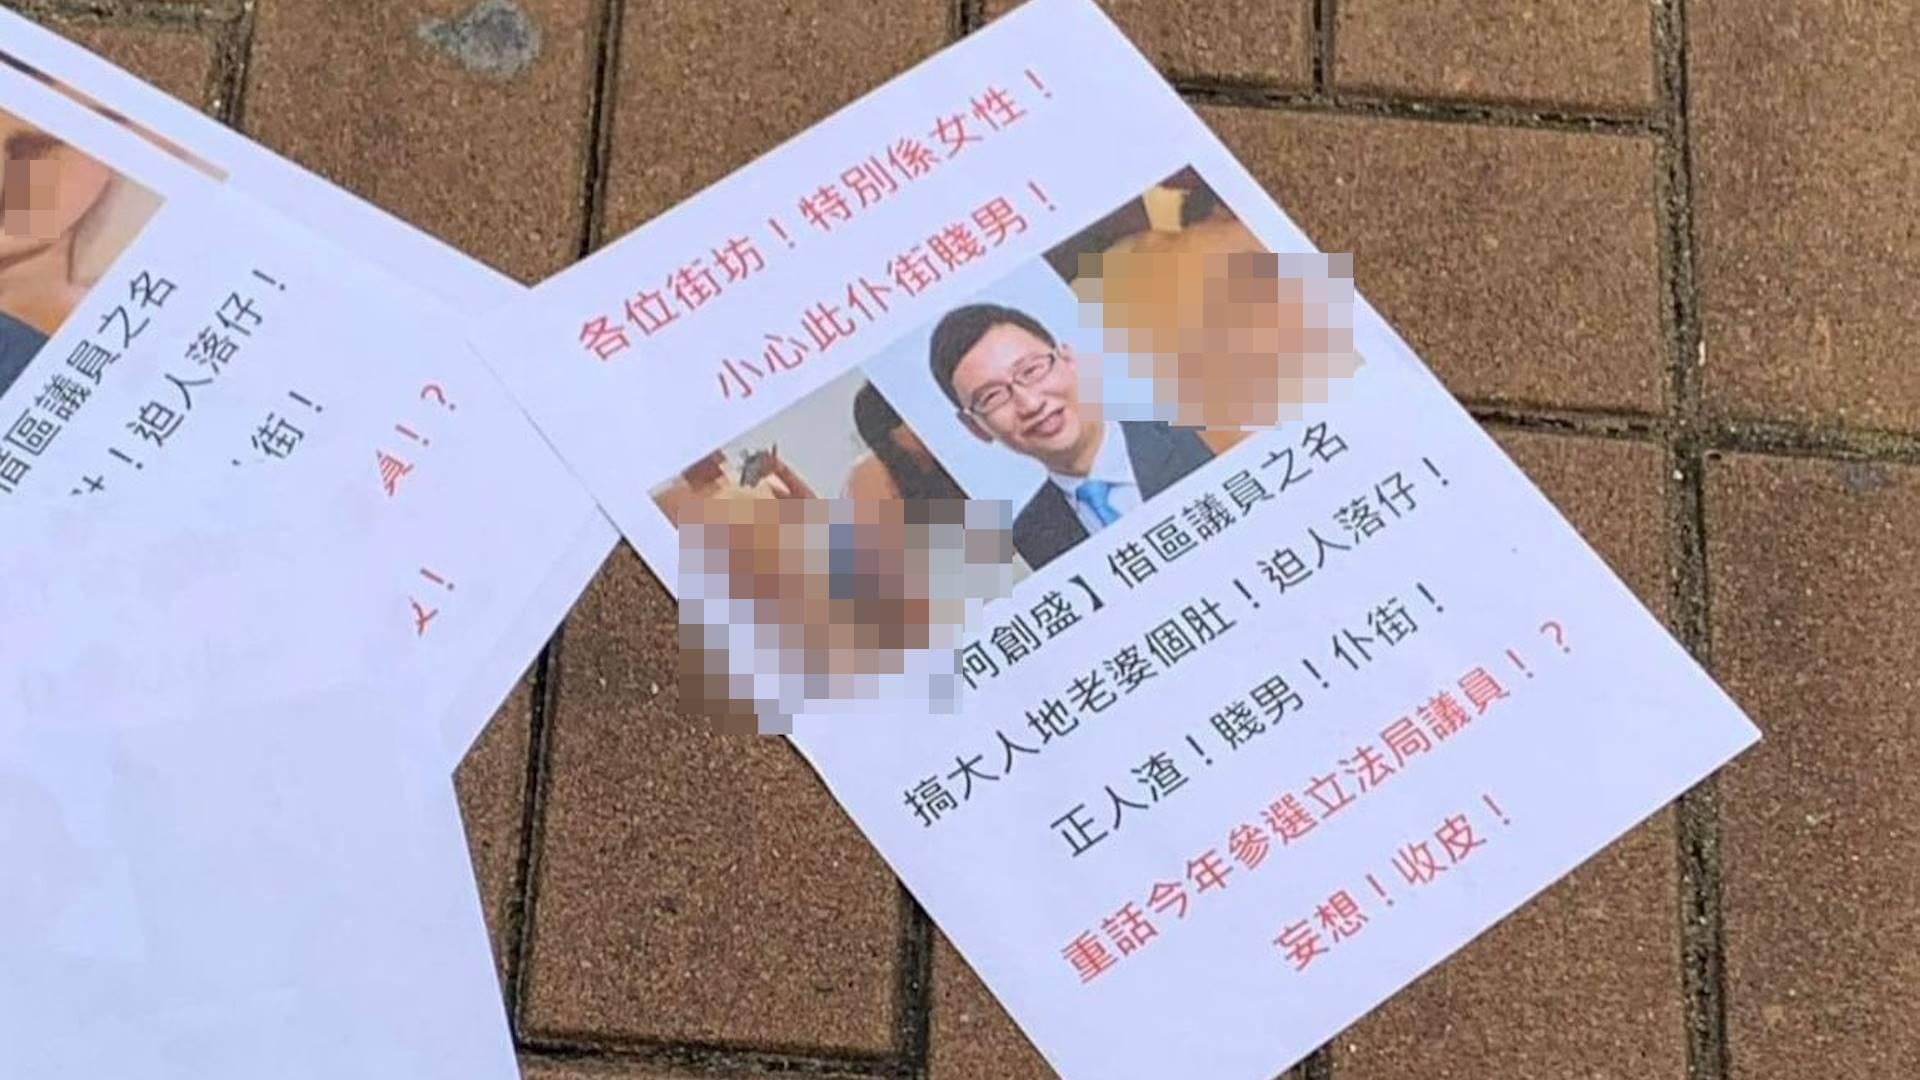 借區議員之名
！迫人落仔！
街！
員！？
！
各位街坊！特別係女性！
小心此仆街賤男！
柯創盛】借區議員之名
搞大人地老婆個肚！迫人落仔！
正人渣！賤男！仆街！
重話今年參選立法局議員！？
妄想！收皮！